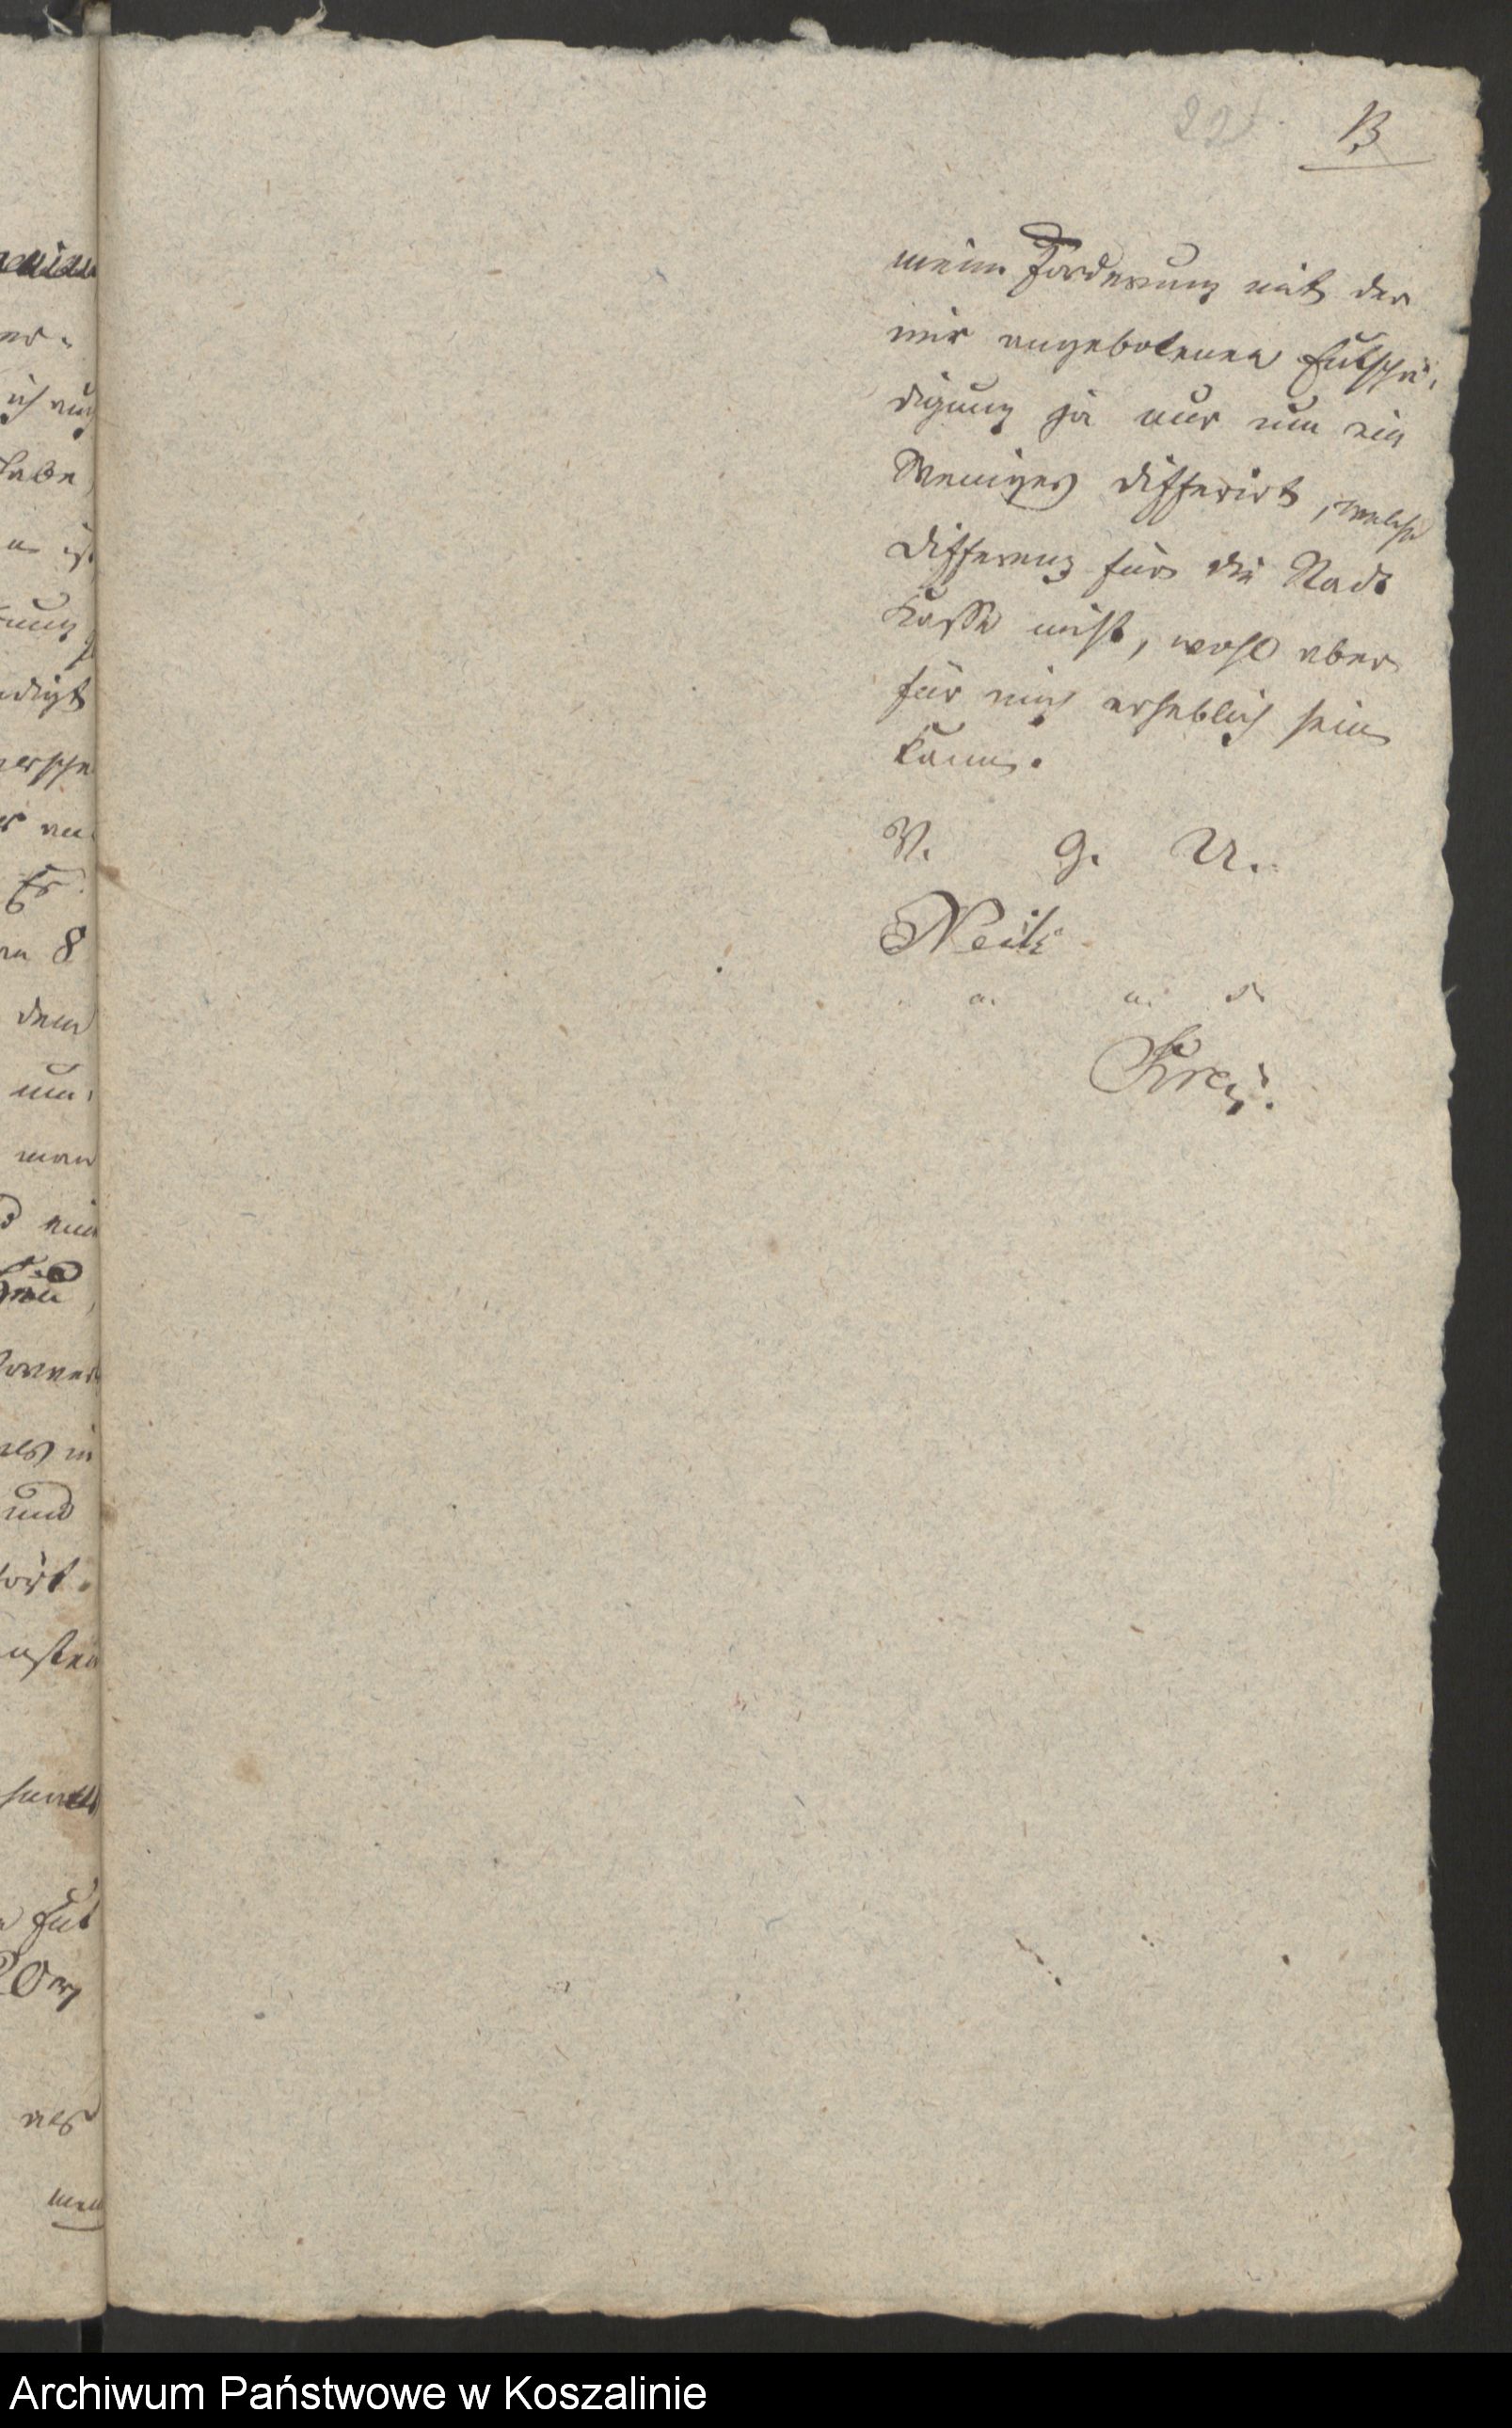 13
meine Forderung mit der
mir angebotenen Entschä-
digung ja nur um ein
Weniges differirt, welche
Differenz für die Stadt
Kasse nicht, wohl aber
für mich erheblich sein
kann.
V. g. U.
a. u. s.
Krey.
ich auch
habe
ist
digt
er an
8
dem
man
und
als
Archiwum Państwowe w Koszalinie